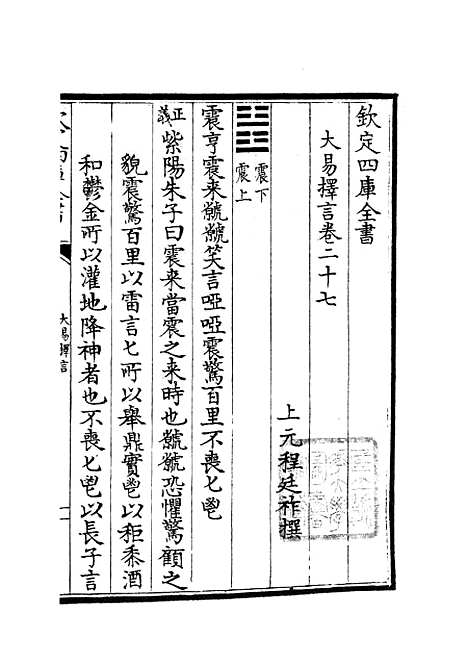 欽定四庫全書
大易擇言卷二十七
上元程廷祚撰
震下
震上
震亨震来虩虩笑言啞啞震驚百里不喪匕鬯
正義
紫陽朱子曰震来當震之来時也虩虩恐懼驚顧之
貌震驚百里以雷言匕所以舉鼎實鬯以秬黍酒
和鬱金所以灌地降神者也不喪匕鬯以長子言
大易擇言